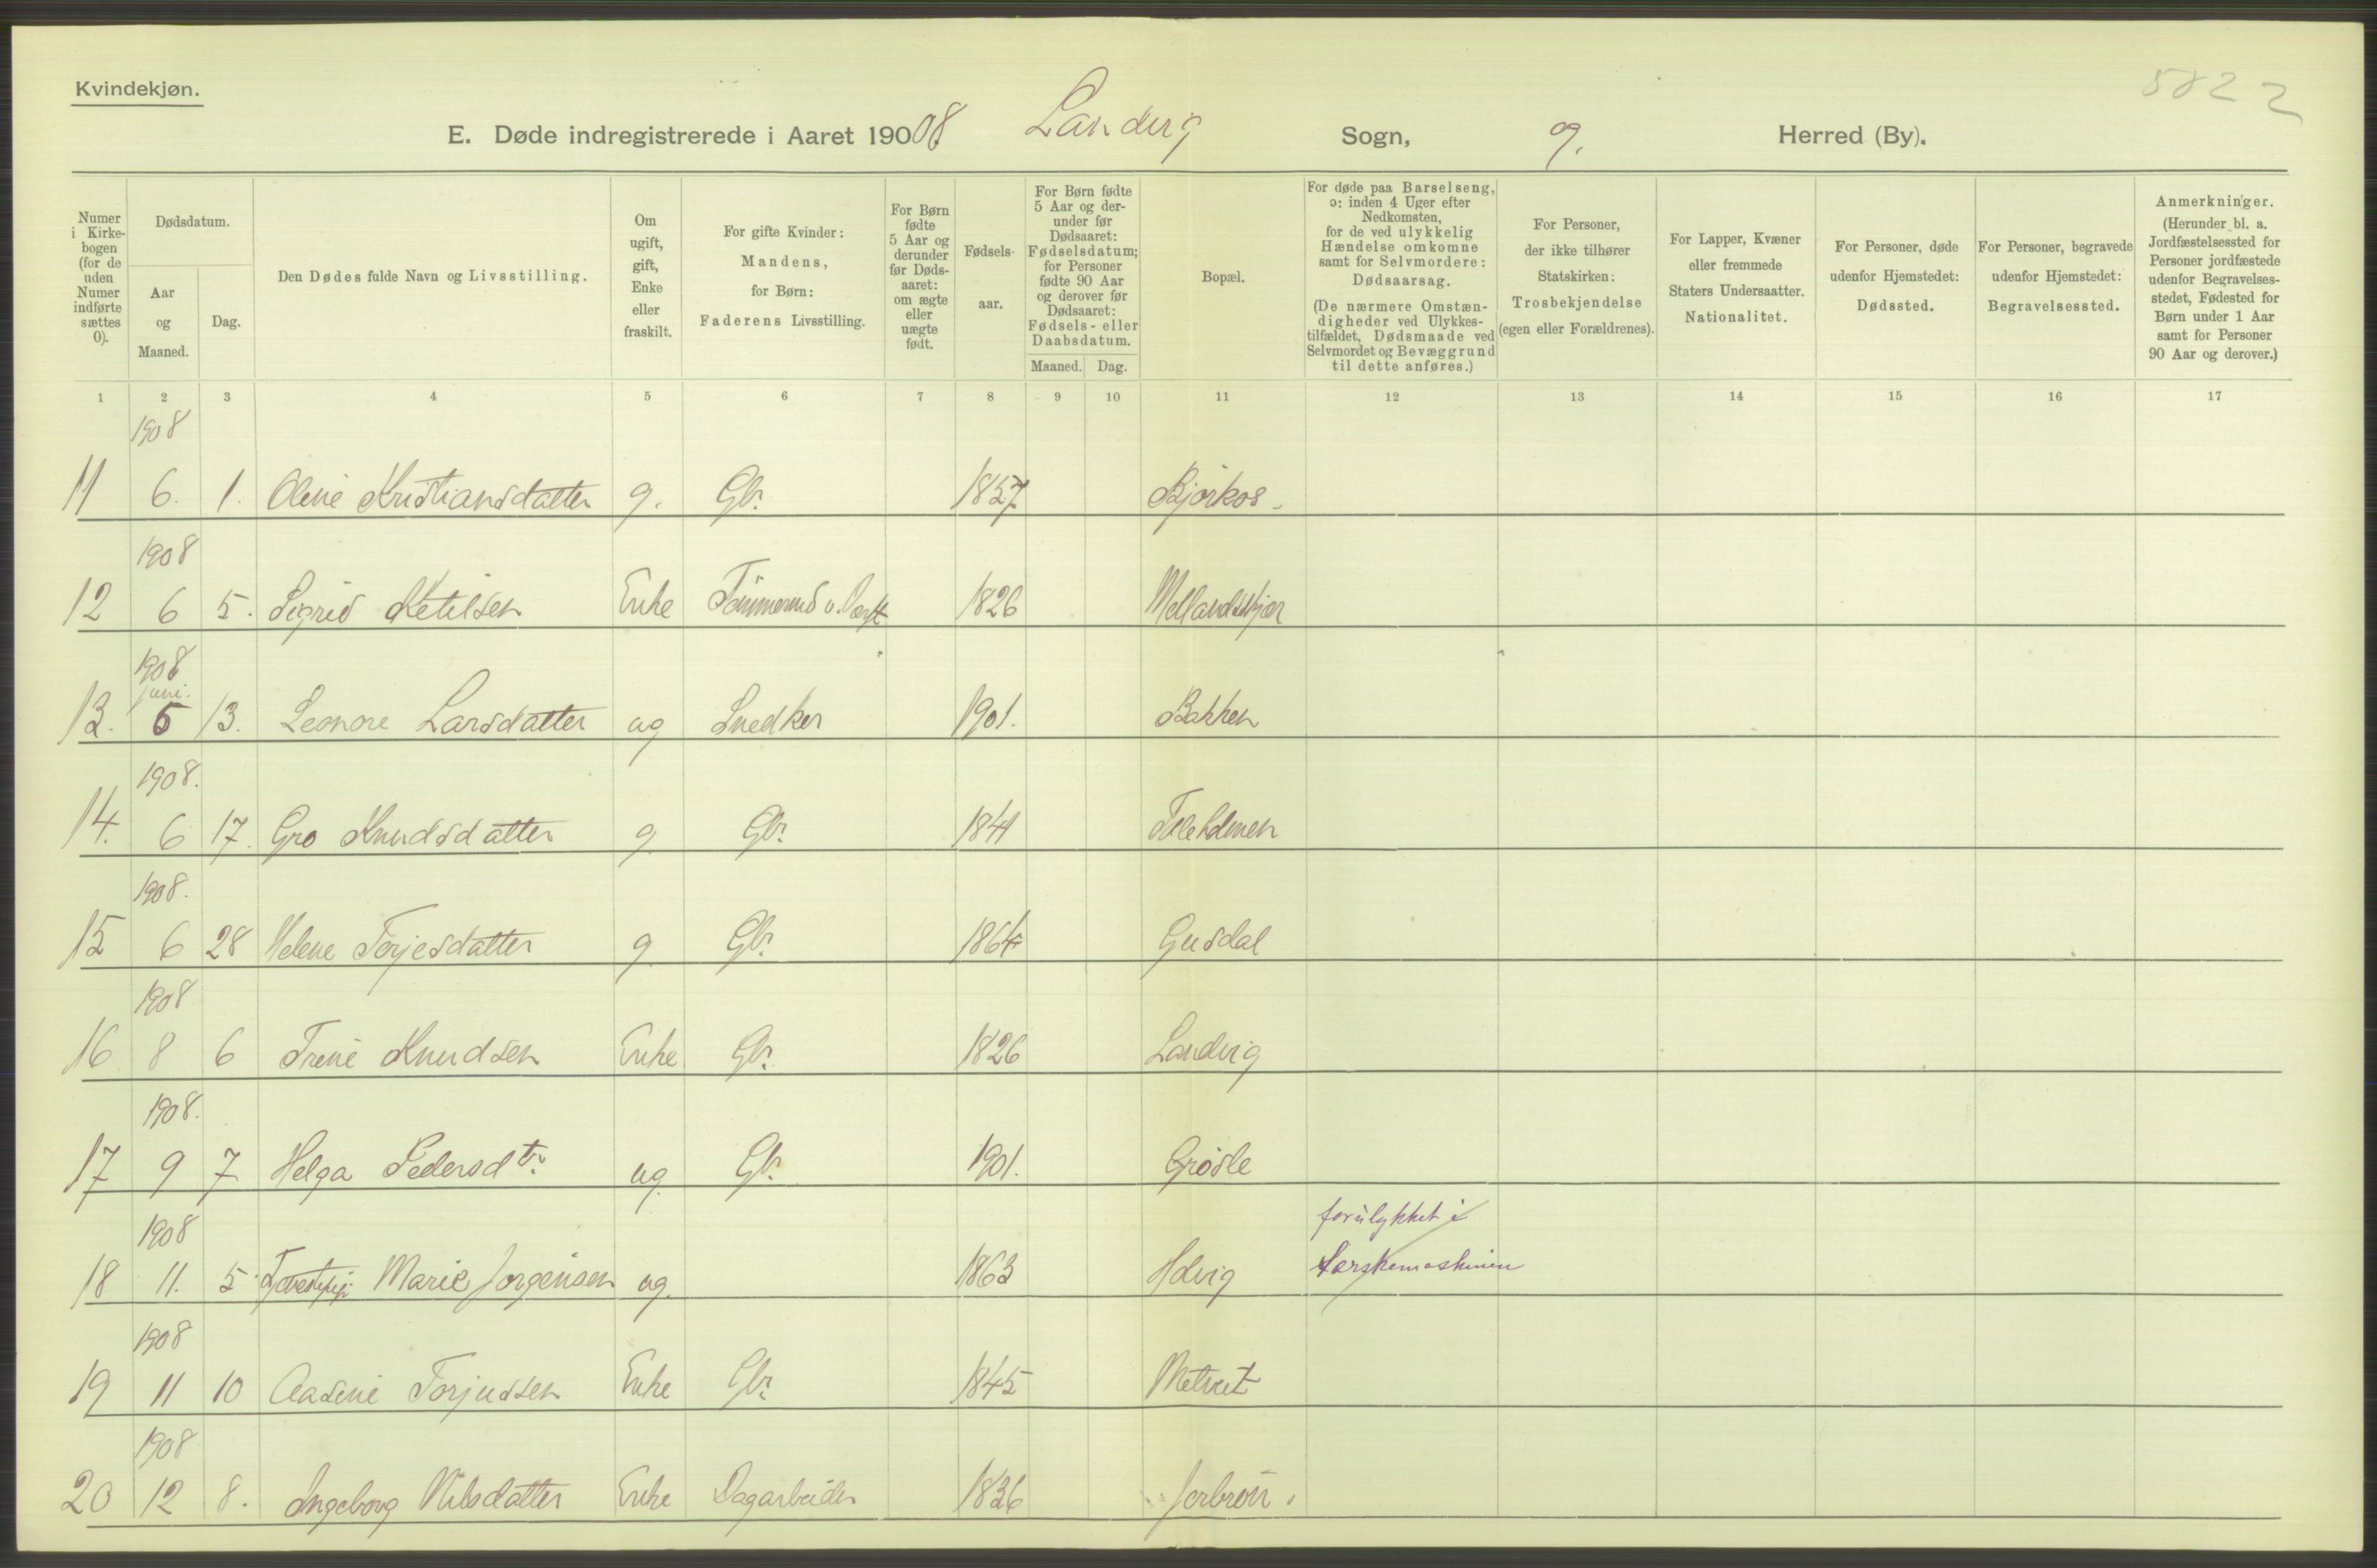 Kvindekjøn.
5822
E. Døde indregistrerede i Aaret 19008 Landvig Sogn, 9. Herred (By).
Numer i Kirkebogen (for de uden Numer indførte sættes 0).
Dødsdatum.
Aar og Maaned.
Dag.
Den Dødes fulde Navn og Livsstilling.
Om ugift, gift, Enke eller fraskilt.
For gifte Kvinder: Mandens, for Børn: Faderens Livsstilling.
For Børn fødte 5 Aar og derunder før Dødsaaret: om ægte eller uægte født.
Fødselsaar.
For Børn fødte 5 Aar og derunder før Dødsaaret: Fødselsdatum; for Personer fødte 90 Aar og derover før Dødsaaret: Fødsels- eller Daabsdatum.
Maaned. Dag.
Bopæl.
For døde paa Barselseng, ɔ: inden 4 Uger efter Nedkomsten, for de ved ulykkelig Hændelse omkomne samt for Selvmordere: Dødsaarsag.
(De nærmere Omstændigheder ved Ulykkestilfældet, Dødsmaade ved Selvmordet og Bevæggrund til dette anføres.)
For Personer, der ikke tilhører Statskirken: Trosbekjendelse (egen eller Forældrenes).
For Lapper, Kvæner eller fremmede Staters Undersaatter. Nationalitet.
For Personer, døde udenfor Hjemstedet: Dødssted.
For Personer, begravede udenfor Hjemstedet: Begravelsessted.
Anmerkninger.
(Herunder bl. a. Jordfæstelsessted for Personer jordfæstede udenfor Begravelsesstedet, Fødested for Børn under 1 Aar samt for Personer 90 Aar og derover.)
1 2 3 4 5 6 7 8 9 10 11 12 13 14 15 16 17
1908
11 6. 1. Oline Kristiansdatter g. Gbr. 1857 Bjørkos
1908
12 6 5. Sigrid Ketilsen Enke Tømmermand 1826 Mollandskjær
1908
juni.
13. 6 13. Leonore Larsdatter ug Snedker 1901. Bakken
1908.
14. 6 17. Gro Knudsdatter g Gbr. 1841
1908.
15 6 28 Helene Terjesdatter g Gbr. 1864 Gusdal
1908
16 8 6 Trine Knudsen Enke Gbr. 1826 Landvig
1908.
17 9 7 Helga Pedersdtr. ug. Gbr. 1901. Grøsle
1908 forulykket i
18 11. 5. Marie Jørgensen ug. 1863 Hdvig tærskemaskinen
1908
19 11 10 Aasine Torjussen Enke Gbr. 1845
1908
20 12 8. Ingeborg Nilsdatter Enke Dagarbeider 1836